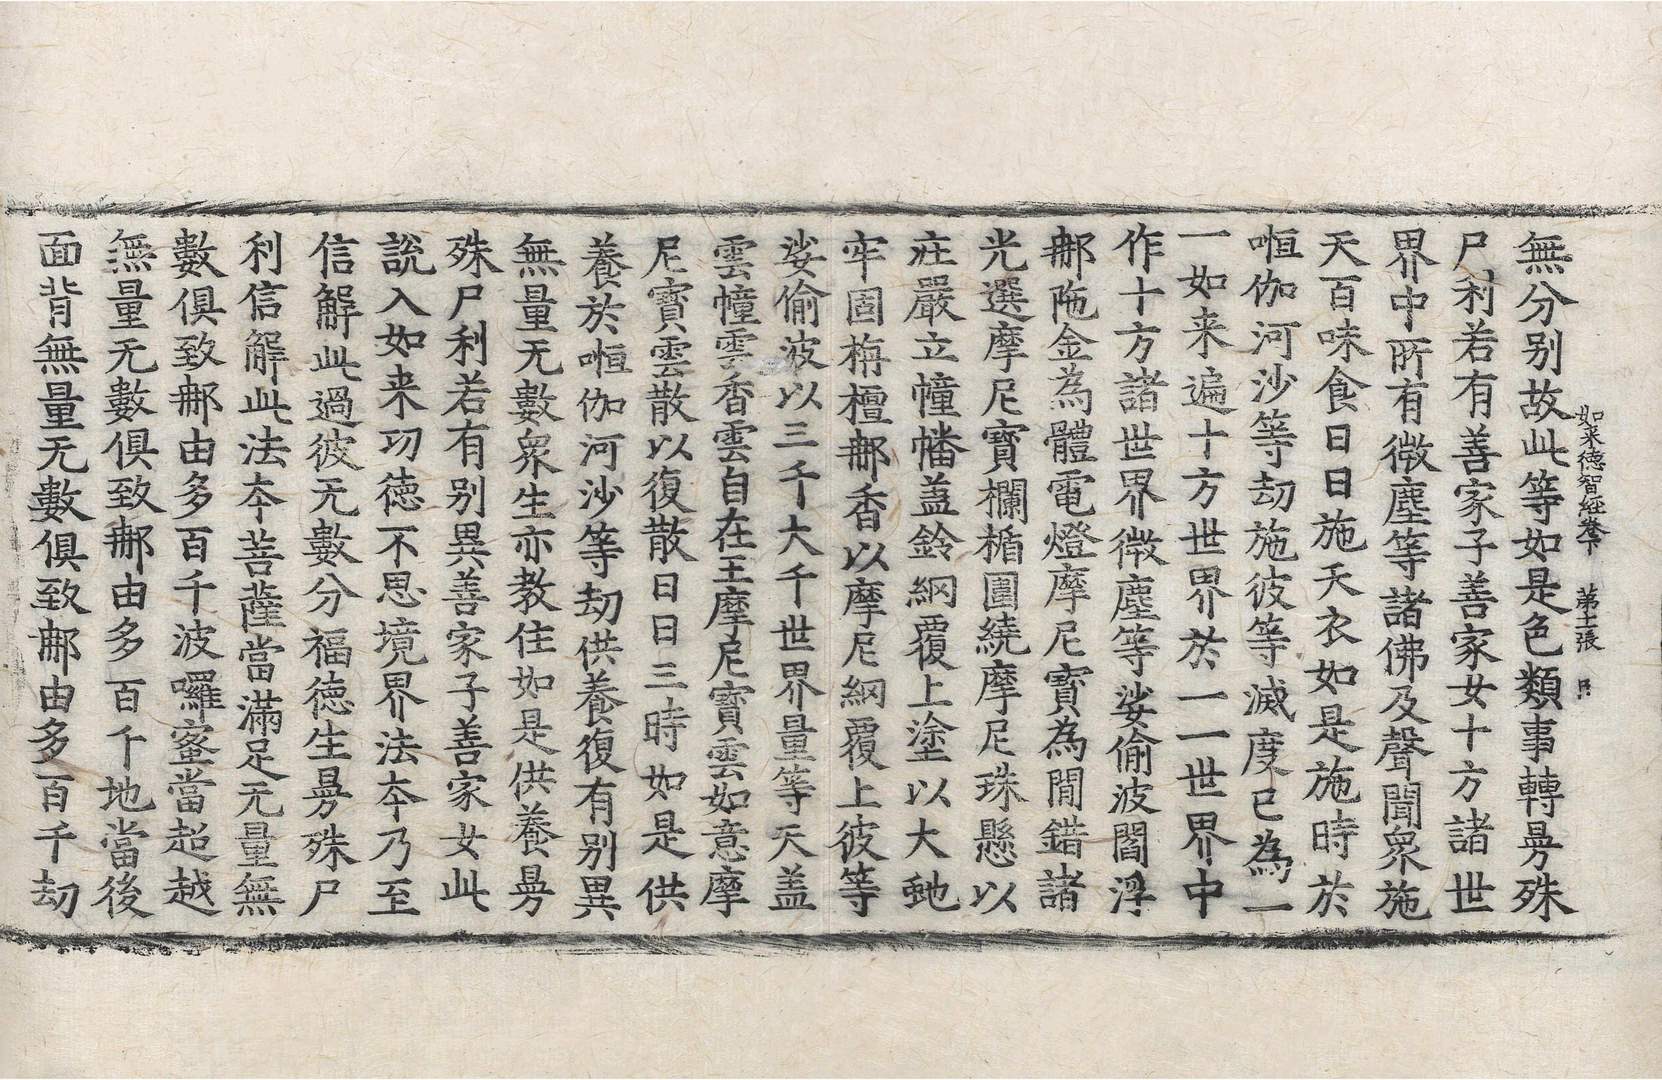 如来德智経卷下　第十一張
無分别故此等如是色類事轉曼殊
尸利若有善家子善家女十方諸世
界中所有微塵等諸佛及聲聞衆施
天百味食日日施天衣如是施時於
恒伽河沙等劫施彼等滅度已為一
一如来遍十方世界於一一世界中
作十方諸世界微塵等娑偷波閻浮
那陁金為體電燈摩尼寶為間錯諸
光選摩尼寶欄楯圍繞摩尼珠懸以
庄嚴立幢幡盖鈴網覆上塗以大虵
牢固栴檀那香以摩尼網覆上彼等
娑偷波以三千大千世界量等天盖
雲幢雲香雲自在王摩尼寶雲如意摩
尼寶雲散以復散日日三時如是供
養於恒伽河沙等劫供養復有别異
無量无數衆生亦教住如是供養曼
殊尸利若有别異善家子善家女此
說入如来功德不思境界法夲乃至
信解此過彼无數分福德生曼殊尸
利信解此法夲菩薩當滿足无量無
數俱致那由多百千波囉蜜當超越
無量无數俱致那由多百千地當後
面背無量无數俱致那由多百千劫